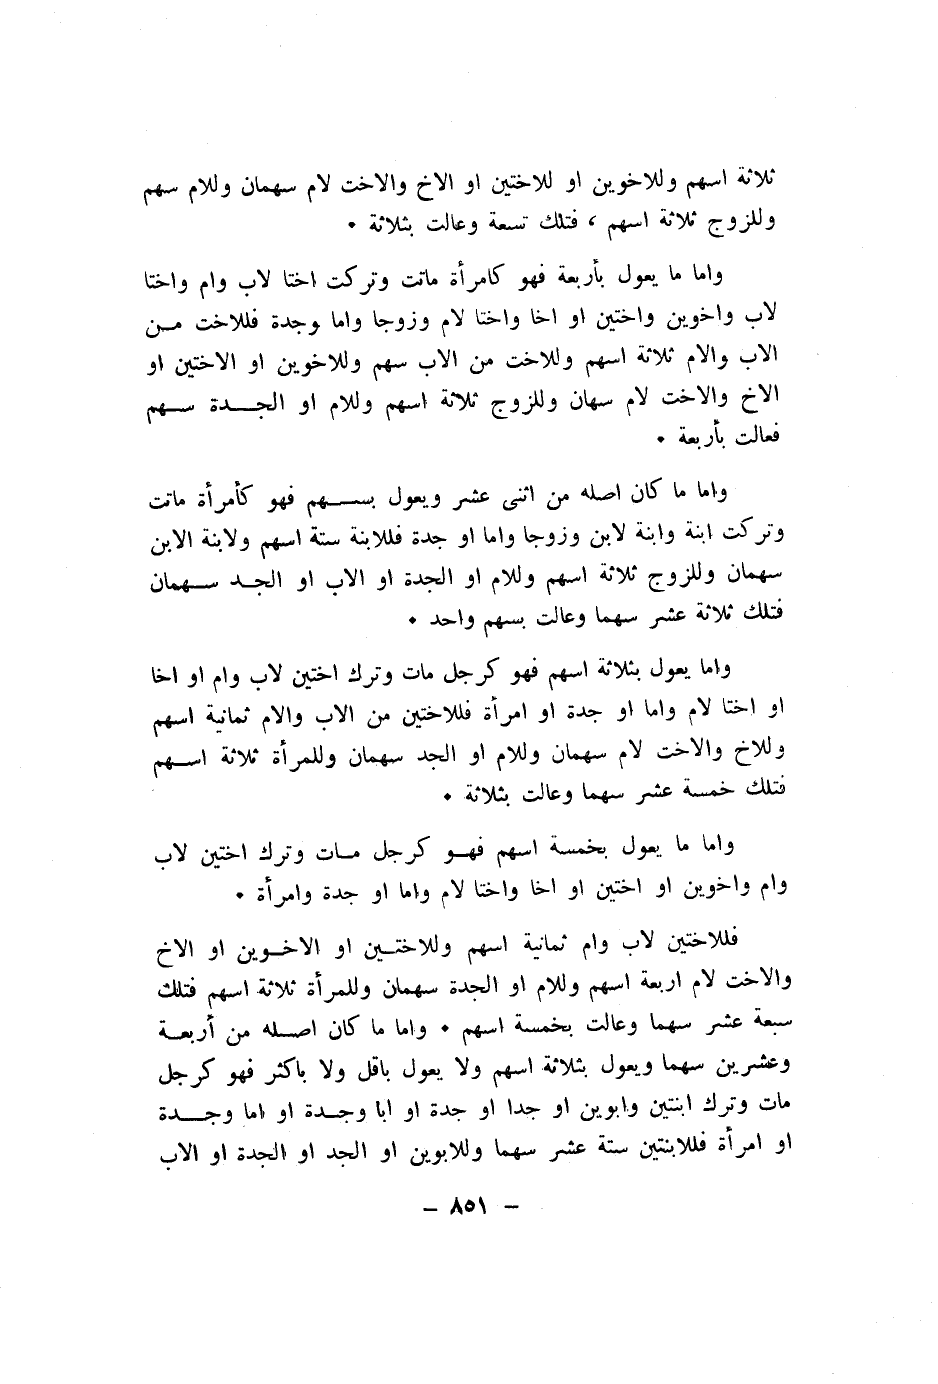 ثلاثة اسهم وللاخوين او للاختين او الاخ والاخت لام سهمان وللام سهم
وللزوج ثلاثة اسهم ، فتلك تسعة وعالت بثلاثة •
واما ما يعول بأربعة فهو كامرأة ماتت وتركت اختا لاب وام واختا
لاب واخوين واختين او اخا واختا لام وزوجا واما وجدة فللاخت مـن
الاب والام ثلاثة اسهم وللاخت من الاب سهم وللاخوين او الاختين او
الاخ والاخت لام سهان وللزوج ثلاثة اسهم وللام او الجـــدة ســهم
فعالت بأربعة •
واما ما كان اصله من اثنى عشر ويعول بســـهم فهو كأمرأة ماتت
وتركت ابنة وابنة لابن وزوجا واما او جدة فللابنة ستة اسهم ولابنة الابن
سهمان وللزوج ثلاثة اسهم وللام او الجدة او الاب او الجـد ســهمان
فتلك ثلاثة عشر سهما وعالت بسهم واحد •
واما يعول بثلاثة اسهم فهو كرجل مات وترك اختين لاب وام او اخا
او اختا لام واما او جدة او امرأة فللاختين من الاب والام ثمانية اسهم
وللاخ والاخت لام سهمان وللام او الجد سهمان وللمرأة ثلاثة اســهم
فتلك خمسة عشر سهما وعالت بثلاثة •
واما ما يعول بخمسة اسهم فهــو كرجل مــات وترك اختين لاب
وام واخوين او اختين او اخا واختا لام واما او جدة وامرأة •
فللاختين لاب وام ثمانية اسهم وللاختــين او الاخــوين او الاخ
والاخت لام اربعة اسهم وللام او الجدة سهمان وللمرأة ثلاثة اسهم فتلك
سبعة عشر سهما وعالت بخمسة اسهم • واما ما كان اصــله من أربعــة
وعشرين سهما ويعول بثلاثة اسهم ولا يعول باقل ولا باكثر فهو كرجل
مات وترك ابنتين وابوين او جدا او جدة او ابا وجــدة او اما وجـــدة
او امرأة فللابنتين ستة عشر سهما وللابوين او الجد او الجدة او الاب
– ٨٥١ –